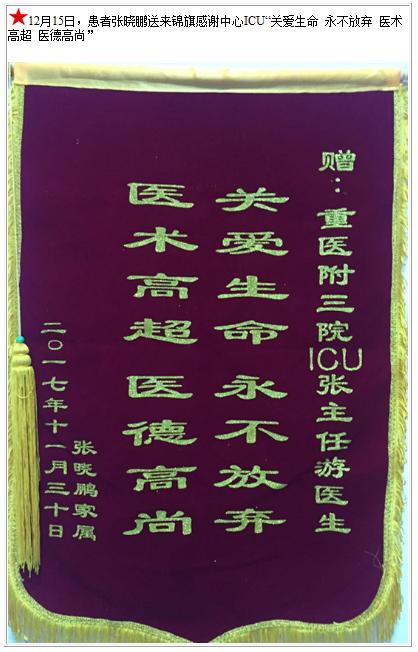 ★12月15日，患者张晓鹏送来锦旗感谢中心ICU“关爱生命 永不放弃 医术
高超 医德高尚”
赠：重医附三院ICU张主任游医生
关爱生命永不放弃
医术高超医德高尚
张晓鹏家属
二〇一七年十一月三十日